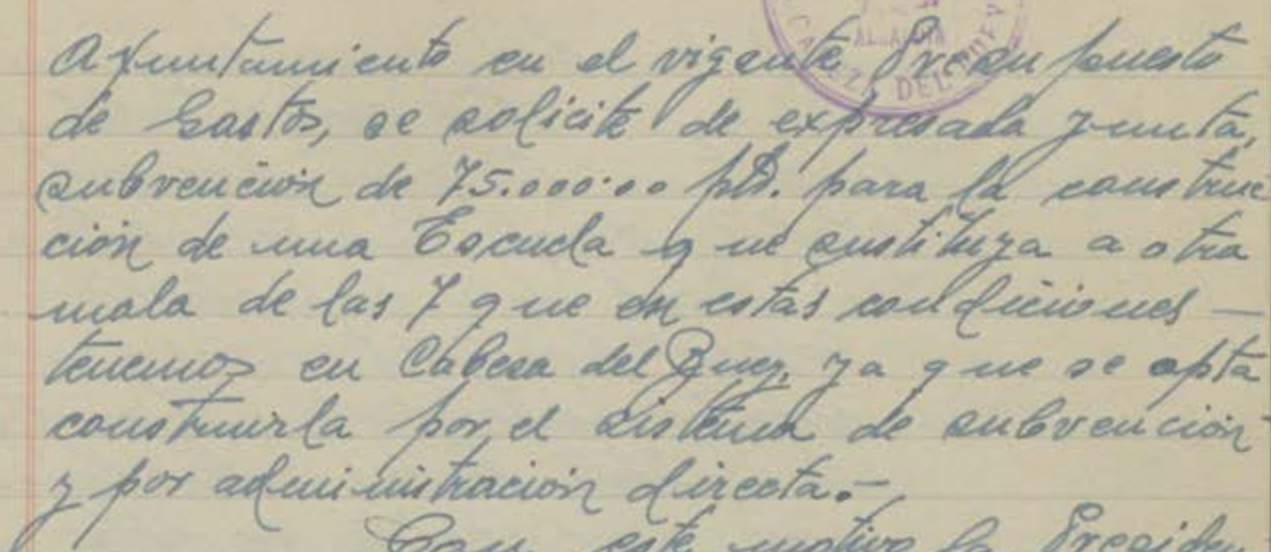 ALCALDIA
CABEZA DEL BUEY
Ayuntamiento en el vigente Presupuesto
de Gastos, se solicite de expresada Junta,
subvención de 75.000'00 pts. para la construc
ción de una Escuela que sustituya a otra
mala de las 7 que en estas condiciones —
tenemos en Cabeza del Buey, ya que se opta
construirla por el sistema de subvención
y por administración directa.-
Con este motivo la Presiden